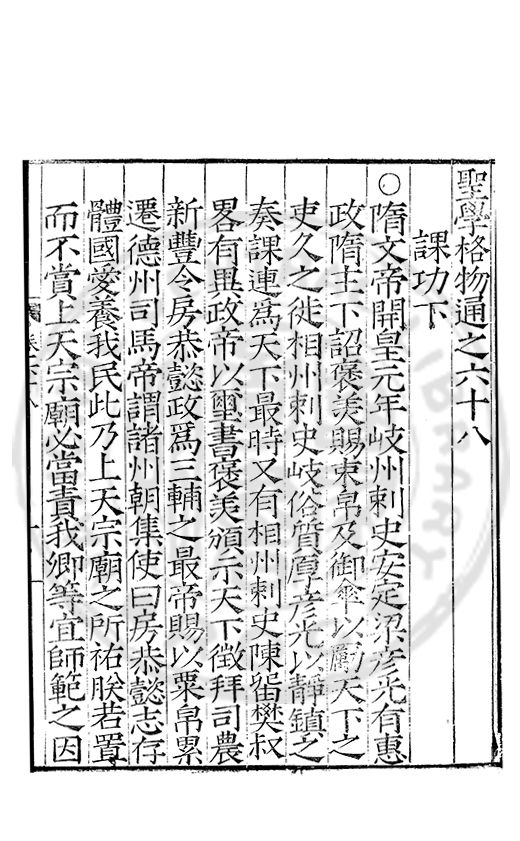 聖學格物通之六十八
課功下
○隋文帝開皇元年岐州刺史安定梁彥光有惠
政隋主下詔褒美賜束帛及御傘以厲天下之
吏久之徙相州刺史岐俗質厚彥光以靜鎮之
奏課連為天下最時又有相州刺史陳留樊叔
畧有異政帝以璽書褒美頒示天下徵拜司農
新豐令房恭懿政為三輔之最帝賜以粟帛累
遷德州司馬帝謂諸州朝集使曰房恭懿志存
體國愛養我民此乃上天宗廟之所祐朕若置
而不賞上天宗廟必當責我卿等宜師範之因